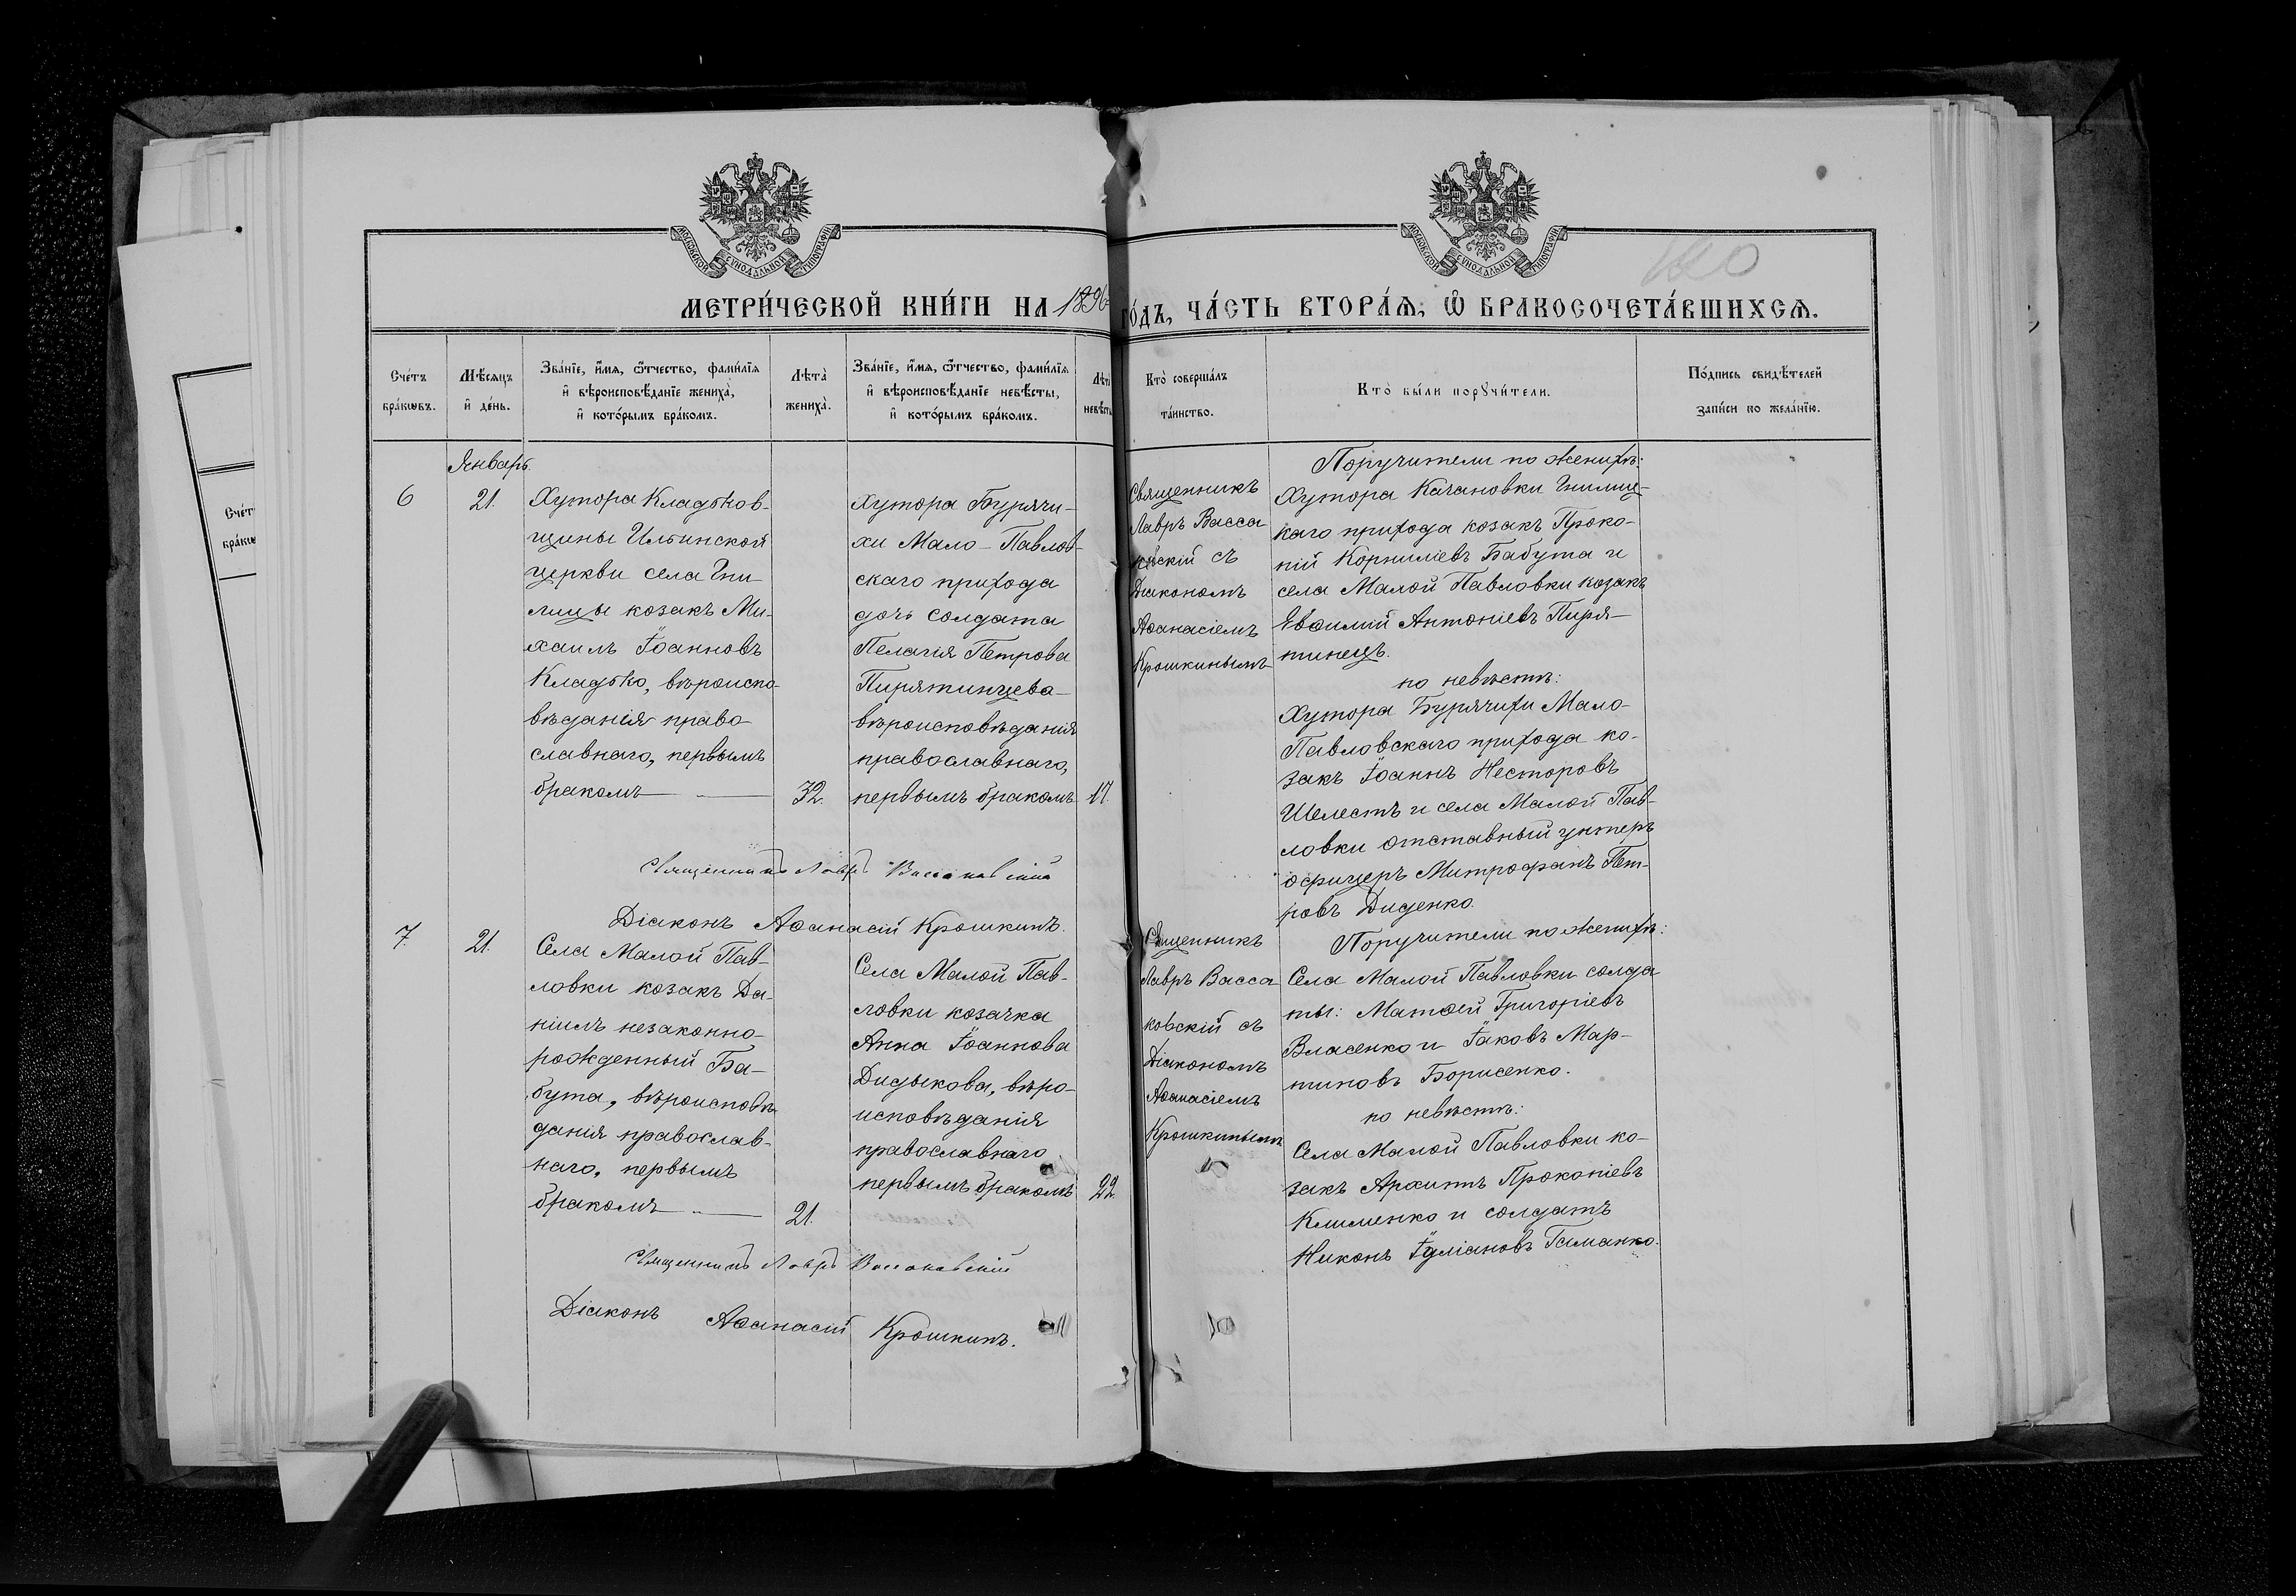 МОСКОВСКОЙ СѴНОДАЛЬНОЙ ТИПОГРАФІИ
МОСКОВСКОЙ СѴНОДАЛЬНОЙ ТИПОГРАФІИ
МЕТРИ́ЧЕСКОЙ КНИ́ГИ НА 1896 ГО́ДЪ, ЧА́СТЬ ВТОРА́Я, Ѡ҆ БРАКОСОЧЕТА́ВШИХСѦ.
Сче́тъ
бра́кѡвъ.
Мѣ́сяцъ
и҆ де́нь.
Зва́нїе, и҆́мя, ѻ҆́тчество, фами́лїя
и҆ вѣроисповѣ́данїе жениха̀,
и҆ кото́рымъ бра́комъ.
Лѣта̀
жениха̀.
Зва́нїе, и҆́мя, ѻ҆́тчество, фами́лїя
и҆ вѣроисповѣ́данїе невѣ́сты,
и҆ кото́рымъ бра́комъ.
Лѣта̀
невѣ́сты
Кто̀ соверша́лъ
та́инство.
Кто̀ бы́ли порꙋчи́тели.
По́дпись свидѣ́телей
за́писи по жела́нїю.
Январь.
6
21.
Хутора Кладьков-
щины Ильинской
церкви села Гни-
лицы козакъ Ми-
хаилъ Іоанновъ
Кладько, вѣроиспо-
вѣданія право-
славнаго, первымъ
бракомъ
32.
Хутора Бурячи-
хи Мало-Павлов-
скаго прихода
дочь солдата
Пелагія Петрова
Пирятинцева
вѣроисповѣданія
православнаго,
первымъ бракомъ
17.
Священникъ
Лавръ Васса
скій съ
Діакономъ
Аѳанасіемъ
Крошкинымъ
Поручители по женихѣ:
Хутора Качановки Гнилиц-
каго прихода козакъ Проко-
пій Корниліевъ Бабута и
села Малой Павловки козакъ
Евѳимій Антоніевъ Пиря-
тинецъ.
по невѣстѣ:
Хутора Бурячихи Мало-
Павловскаго прихода ко-
закъ Іоаннъ Несторовъ
Шелестъ и села Малой Пав-
ловки отставный унтеръ
офицеръ Митрофанъ Пет-
ровъ Диденко.
Священникъ Лавръ Вассаковскій
Діаконъ Аѳанасій Крошкинъ.
7.
21.
Села Малой Пав-
ловки козакъ Да-
ніилъ незаконно-
рожденный Ба-
бута, вѣроисповѣ-
данія православ-
наго, первымъ
бракомъ
21.
Села Малой Пав-
ловки козачка
Анна Іоаннова
Дидыкова, вѣро-
исповѣданія
православнаго
первымъ бракомъ
22.
Священникъ
Лавръ Васса
ковскій съ
Діакономъ
Аѳанасіемъ
Крошкинымъ
Поручители по женихѣ:
Села Малой Павловки солда
ты: Матѳей Григоріевъ
Власенко и Іаковъ Мар-
тиновъ Борисенко.
по невѣстѣ:
Села Малой Павловки ко-
закъ Архипъ Прокопіевъ
Клименко и солдатъ
Никонъ Іуліановъ Гаманко.
Священникъ Лавръ Вассаковскій
Діаконъ Аѳанасій Крошкинъ.
Сче́т
бра́кѡ